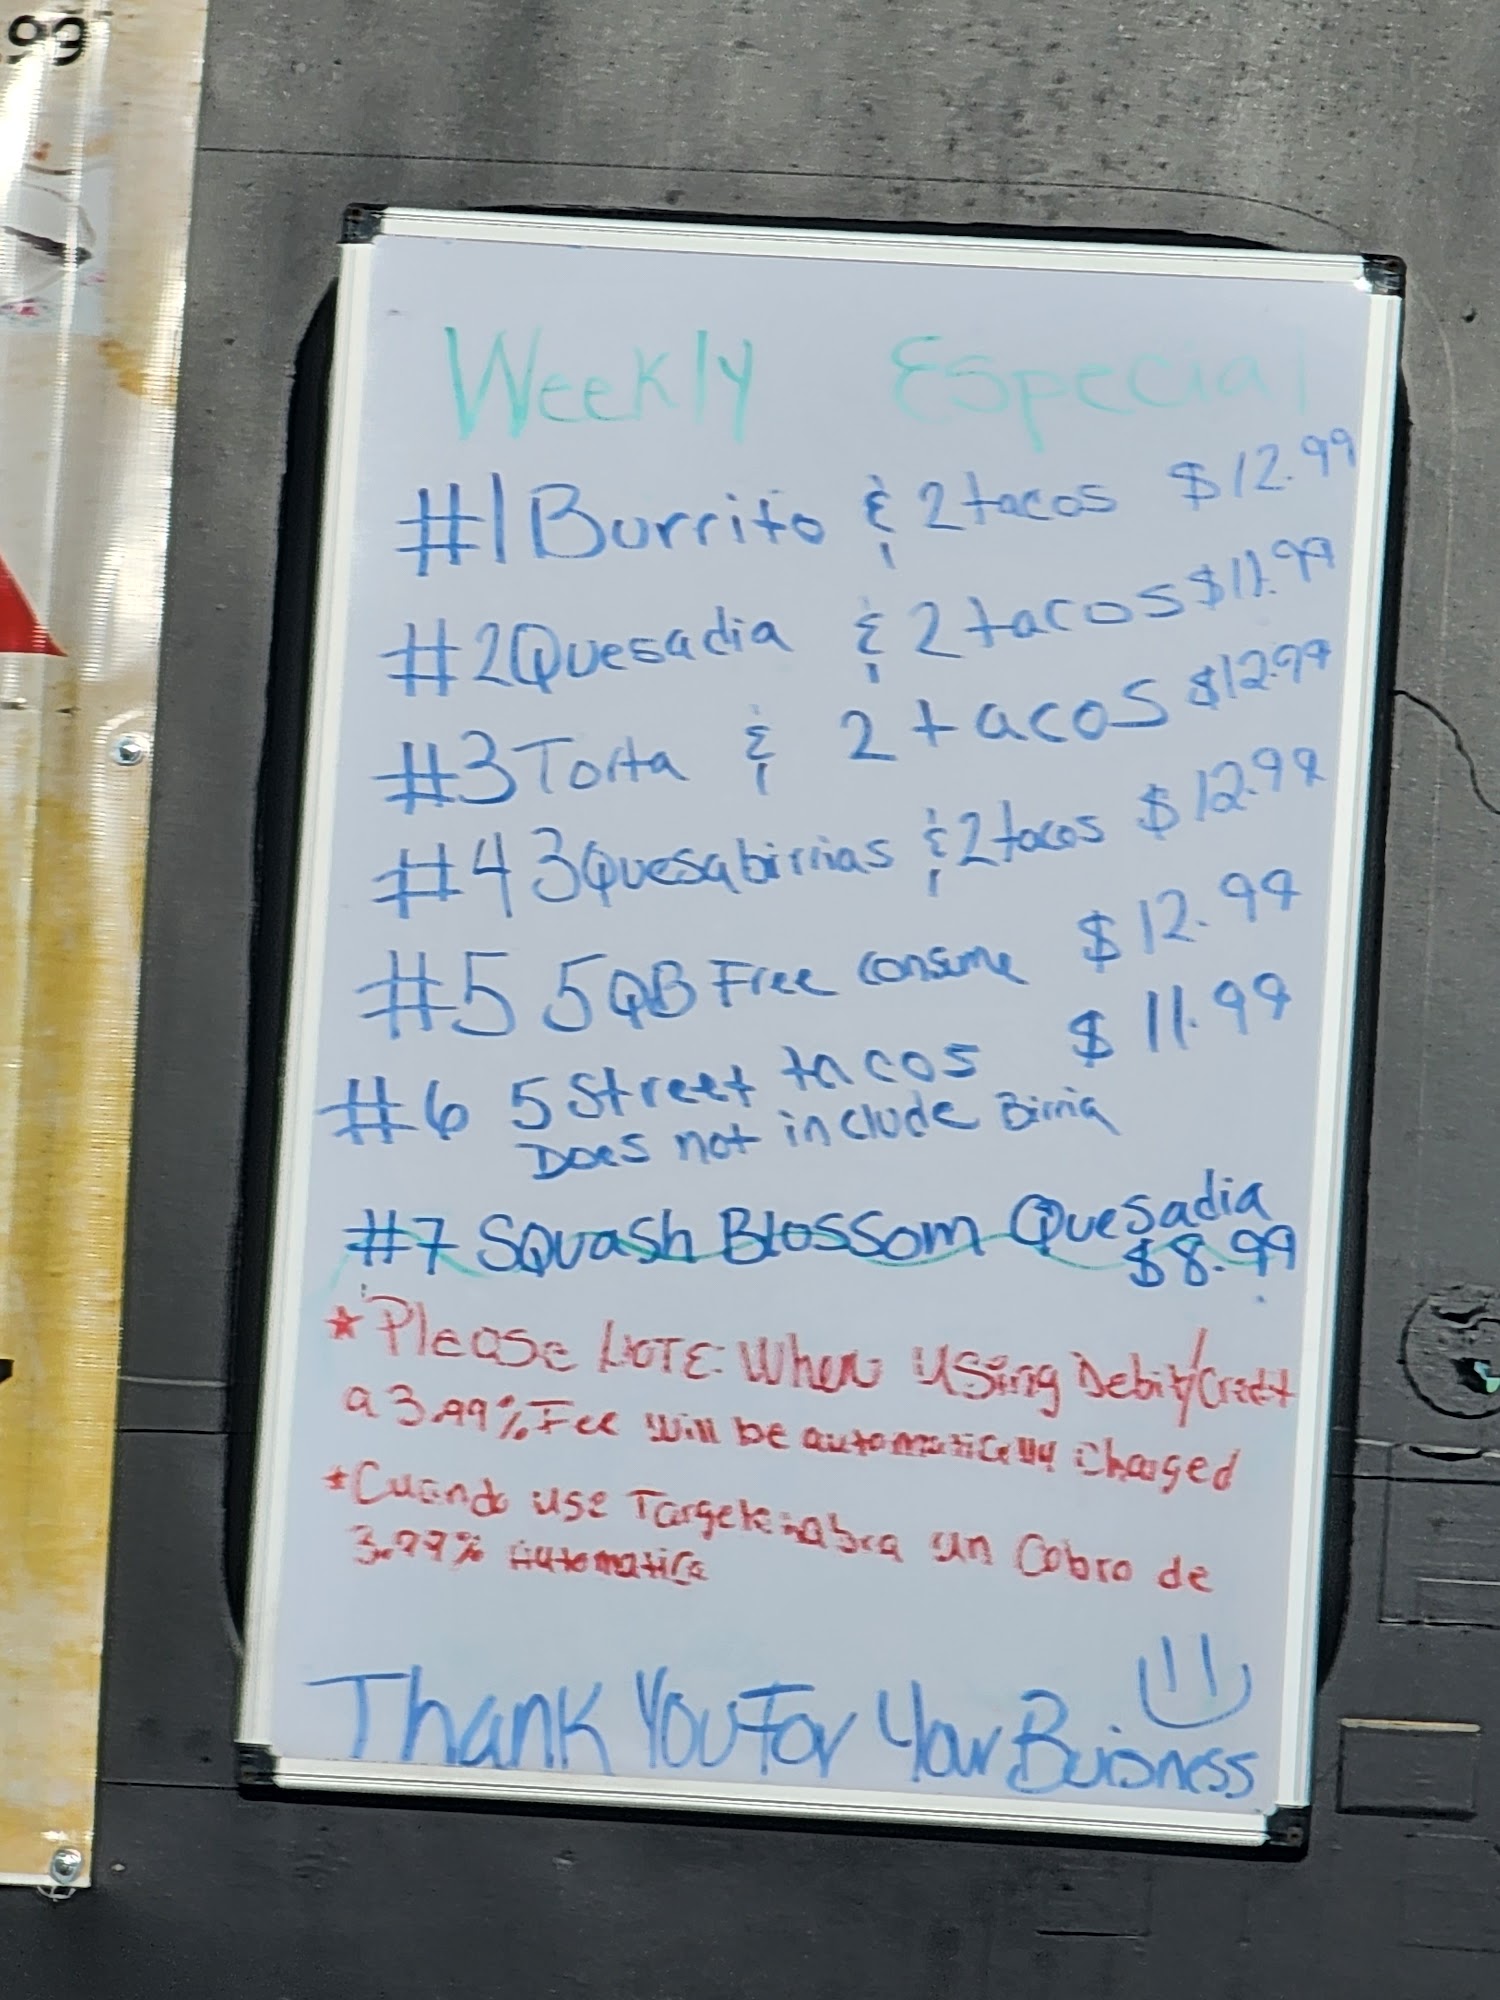 .99
Weekly Especial
#1 Burrito & 2 tacos $12.99
#2 Quesadia & 2 tacos $11.99
#3 Torta & 2 tacos $12.99
#4 3 Quesabirrias & 2 tacos $12.99
#5 5 QB Free consume $12.99
#6 5 Street tacos $11.99
Does not include Birria
#7 Squash Blossom Quesadia
$8.99
*Please NOTE: When Using Debit/Credit
a 3.99% Fee will be automatically Charged
*Cuando use Targeta abra un Cobro de
3.99% Automatica
Thank You For Your Buisness